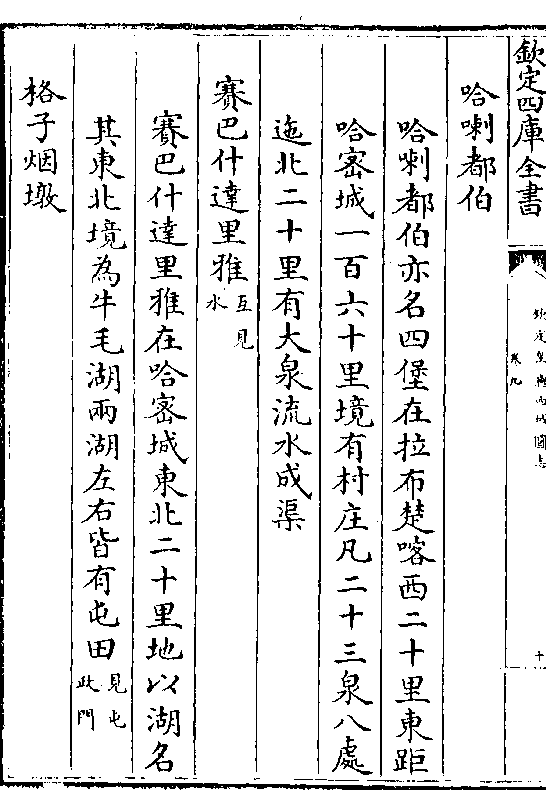 欽定四庫全書
欽定皇輿西域圖志
卷九
十
哈喇都伯
哈喇都伯亦名四堡在拉布楚喀西二十里東距
哈密城一百六十里境有村庄凡二十三泉八處
迤北二十里有大泉流水成渠
賽巴什達里雅互見水
賽巴什達里雅在哈密城東北二十里地以湖名
其東北境為牛毛湖兩湖左右皆有屯田見屯政門
格子烟墩